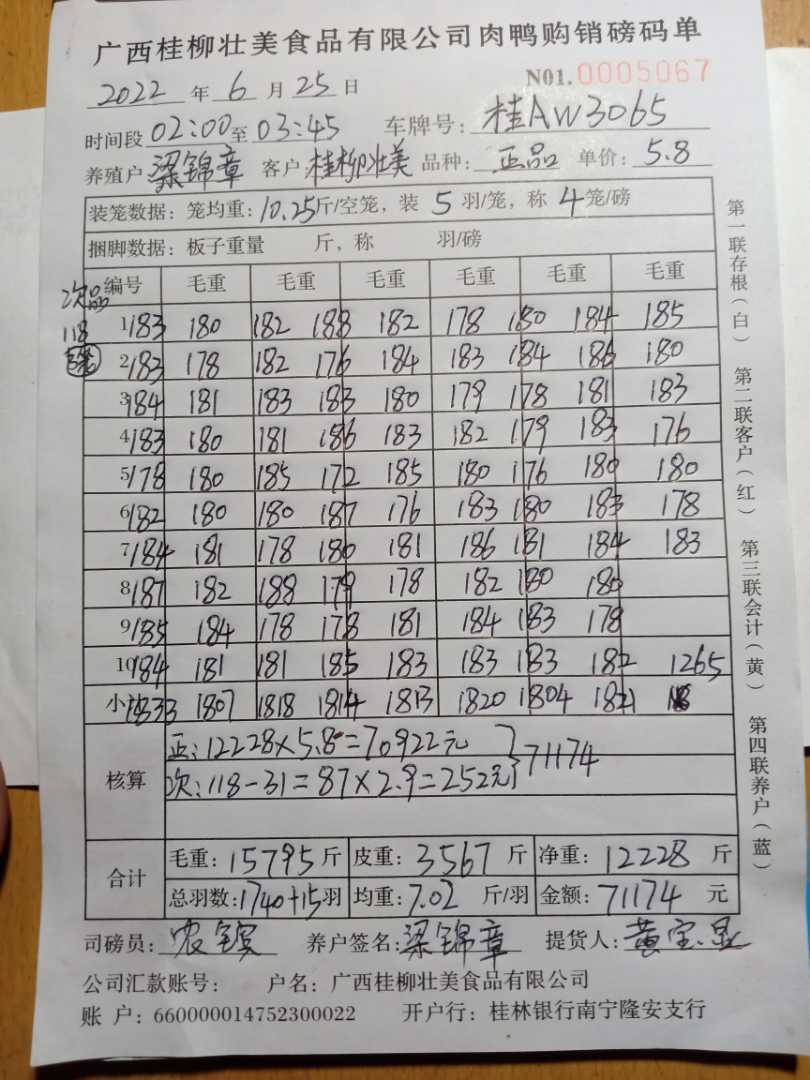 广西桂柳壮美食品有限公司肉鸭购销磅码单
N01. 0005067
2022 年 6 月 25 日
时间段 02:00 至 03:45 车牌号: 桂AW3065
养殖户 梁锦章 客户: 桂柳壮美 品种: 正品 单价: 5.8
装笼数据: 笼均重: 10.25 斤/空笼, 装 5 羽/笼, 称 4 笼/磅
捆脚数据: 板子重量 斤, 称 羽/磅
编号 毛重 毛重 毛重 毛重 毛重 毛重
次品
118
1 183 180 182 188 182 178 180 184 185
2 183 178 182 176 184 183 184 186 180
3 184 181 183 183 180 179 178 181 183
4 183 180 181 186 183 182 179 183 176
5 178 180 185 172 185 180 176 180 180
6 182 180 180 187 176 183 180 183 178
7 184 181 178 180 181 186 181 184 183
8 187 182 188 179 178 182 180 180
9 185 184 178 178 181 184 183 178
10 184 181 181 185 183 183 183 182 1265
小计 1833 1807 1818 1814 1813 1820 1804 1821
核算
正: 12228×5.8=70922元
次: 118-31=87×2.9=252元 } 71174
合计
毛重: 15795 斤 皮重: 3567 斤 净重: 12228 斤
总羽数: 1740+15 羽 均重: 7.02 斤/羽 金额: 71174 元
司磅员: 农 养户签名: 梁锦章 提货人: 黄宝
公司汇款账号: 户名: 广西桂柳壮美食品有限公司
账 户: 660000014752300022 开户行: 桂林银行南宁隆安支行
第一联存根(白) 第二联客户(红) 第三联会计(黄) 第四联养户(蓝)